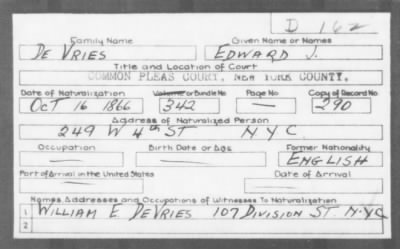 D 162
Family Name Given Name or Names
DE VRIES EDWARD J.
Title and Location of Court
COMMON PLEAS COURT, NEW YORK COUNTY.
Date of Naturalization Volume or Bundle No Page No Copy of Record No
OCT 16 1866 342 — 290
Address of Naturalized Person
249 W 4th ST N Y C
Occupation Birth Date or Age Former Nationality
— — ENGLISH
Port of Arrival in the United States Date of Arrival
— —
Names, Addresses and Occupations of Witnesses To Naturalization
1 WILLIAM E. DEVRIES 107 DIVISION ST N.Y.C
2